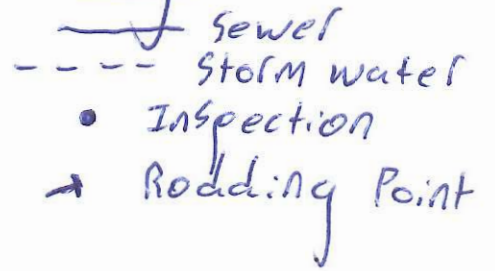 Sewer
Storm water
Inspection
Rodding Point